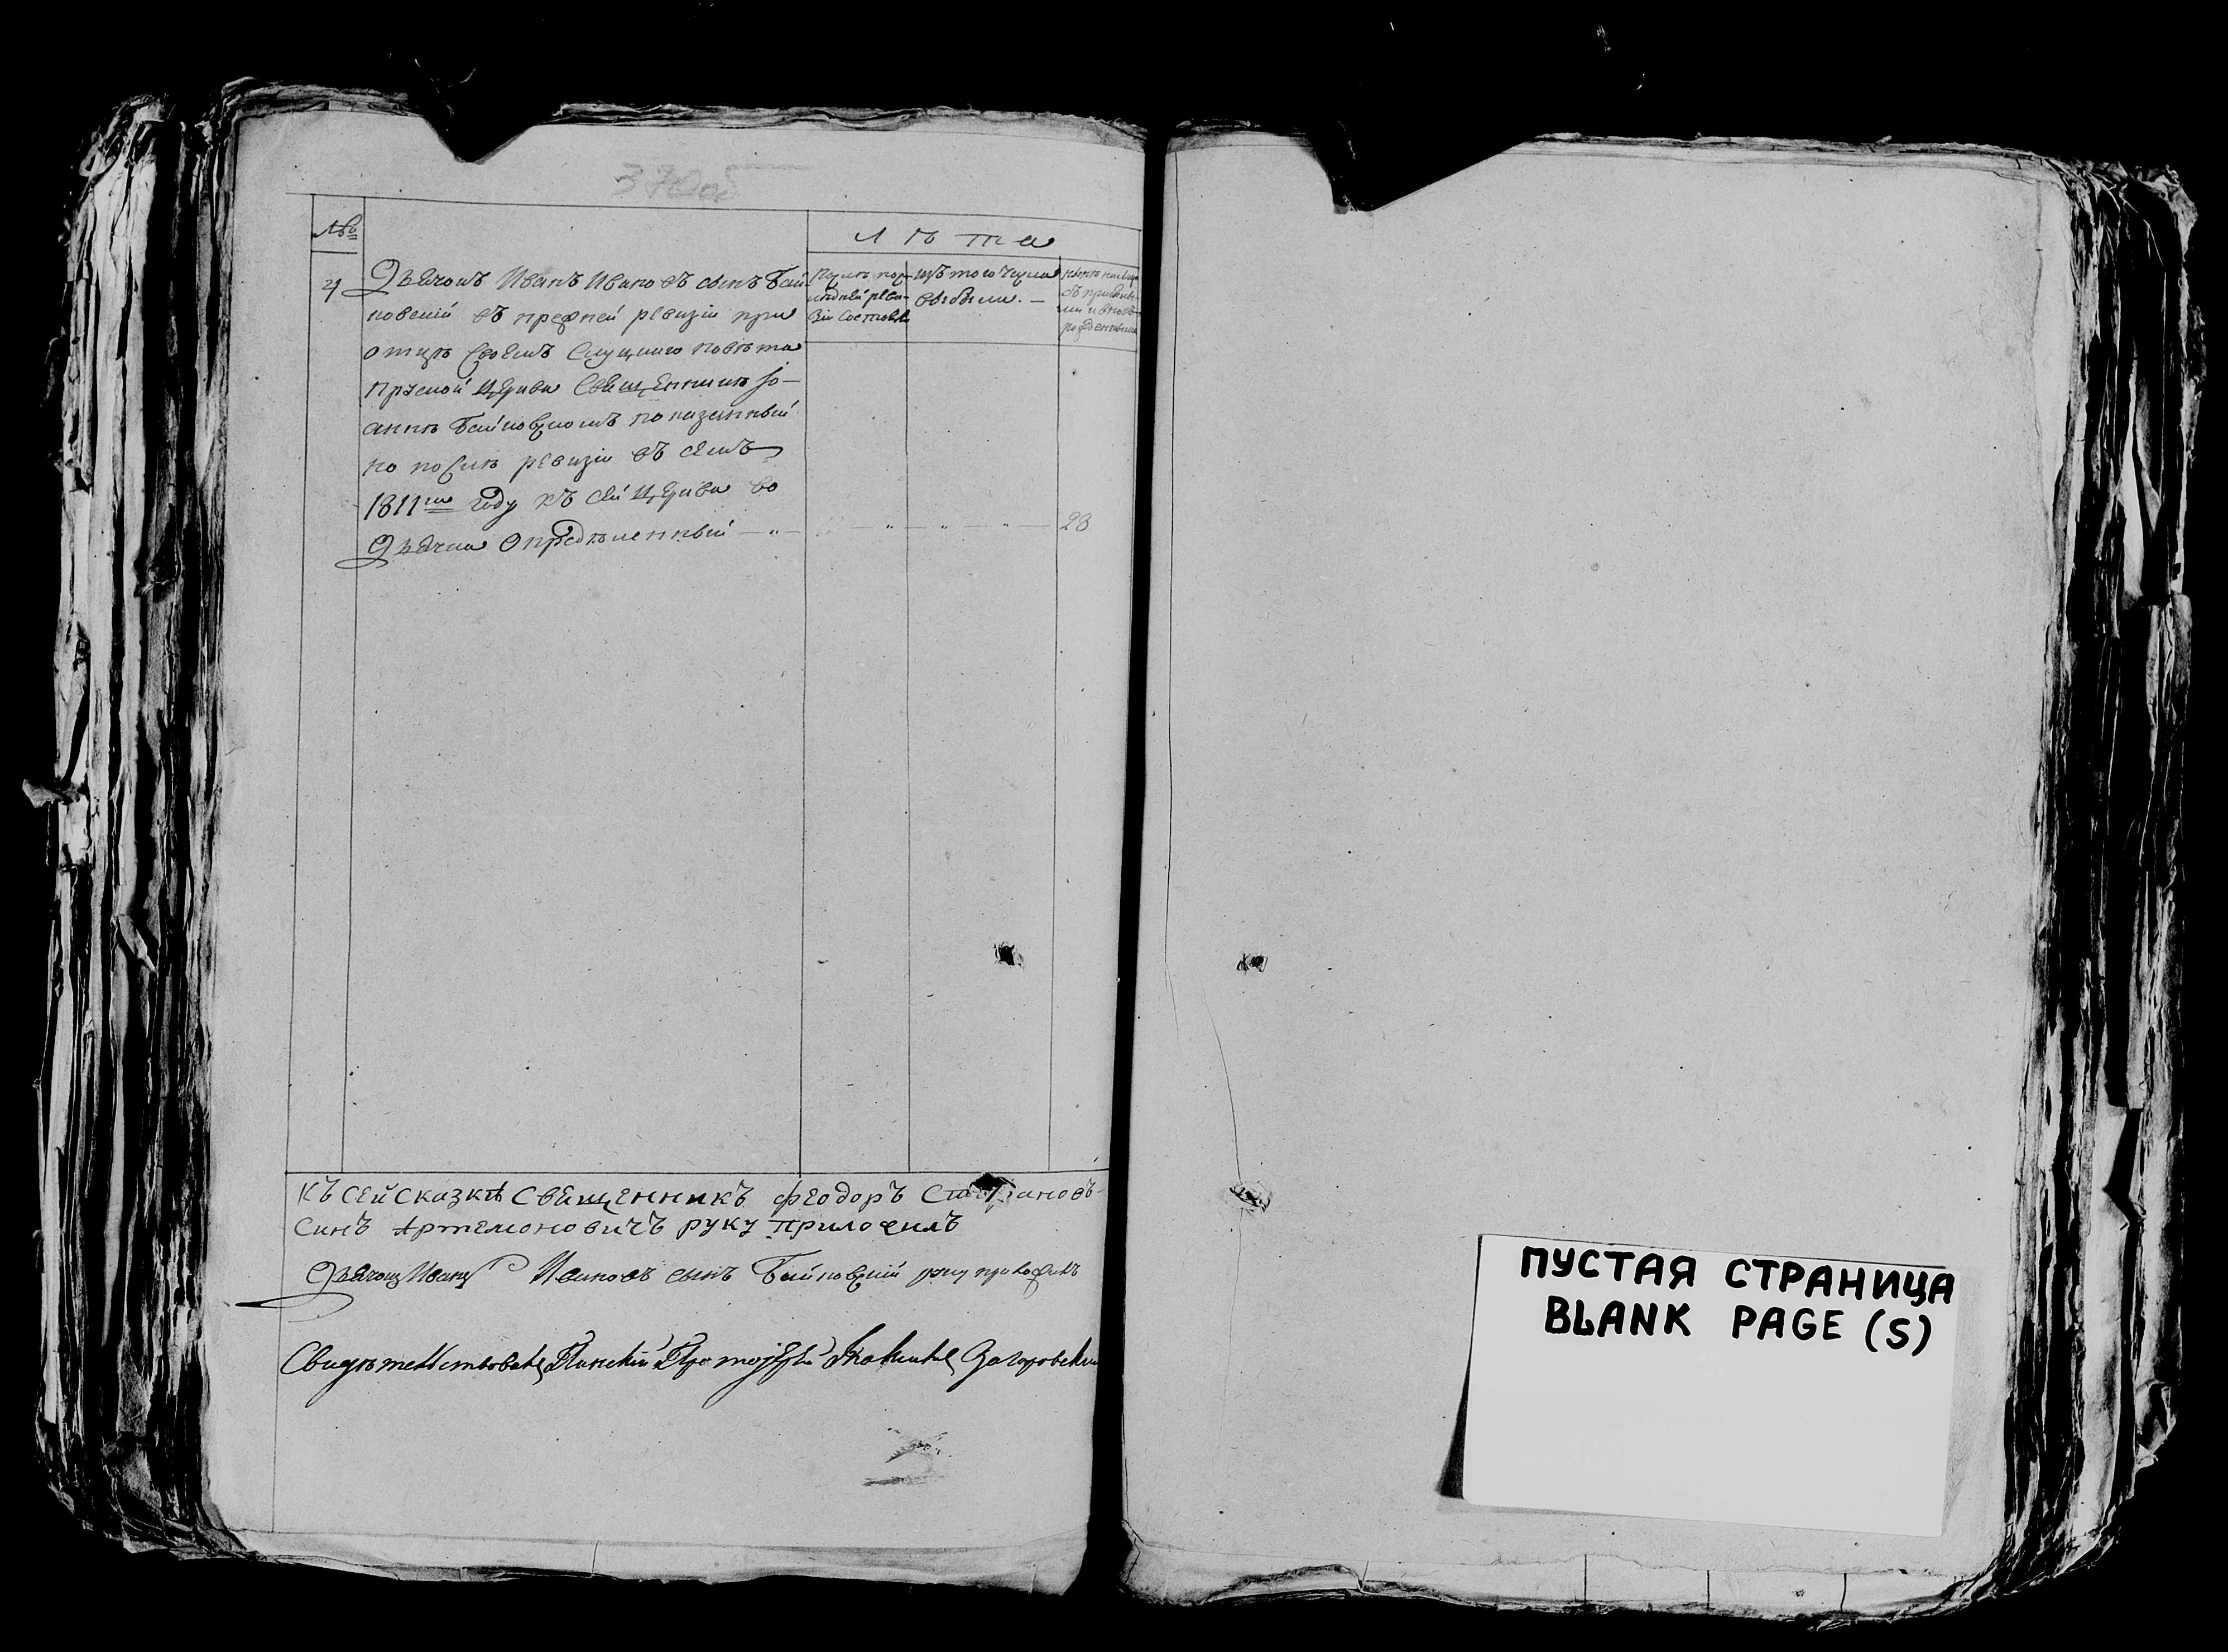 370об
№
Лѣта
4
Дьячокъ Иванъ Ивановъ сынъ Бай
ковскій въ прежней ревизіи при
отцѣ своемъ Слуцкого повѣта
церкви Священникѣ Іо-
аннѣ Байковскомъ показанный
по послѣ ревизіи въ семъ
1811мъ году къ сей церкви во
дьячка определенный — „ —
По послѣ
следней реви-
зіи состояло
изъ того числа
выбыло. —
нынѣ на лицо
съ прибыв-
шими и вновь
рожденными
— „ — „ — „ — 23
Къ сей сказкѣ священникъ Феодоръ
синъ Артемоновичъ руку приложилъ
Дьячокъ Иванъ Ивановъ сынъ Байковскій руку приложилъ
Свидѣтельствовалъ Пинскій Протоіерей Загоровскій
ПУСТАЯ СТРАНИЦА
BLANK PAGE (S)